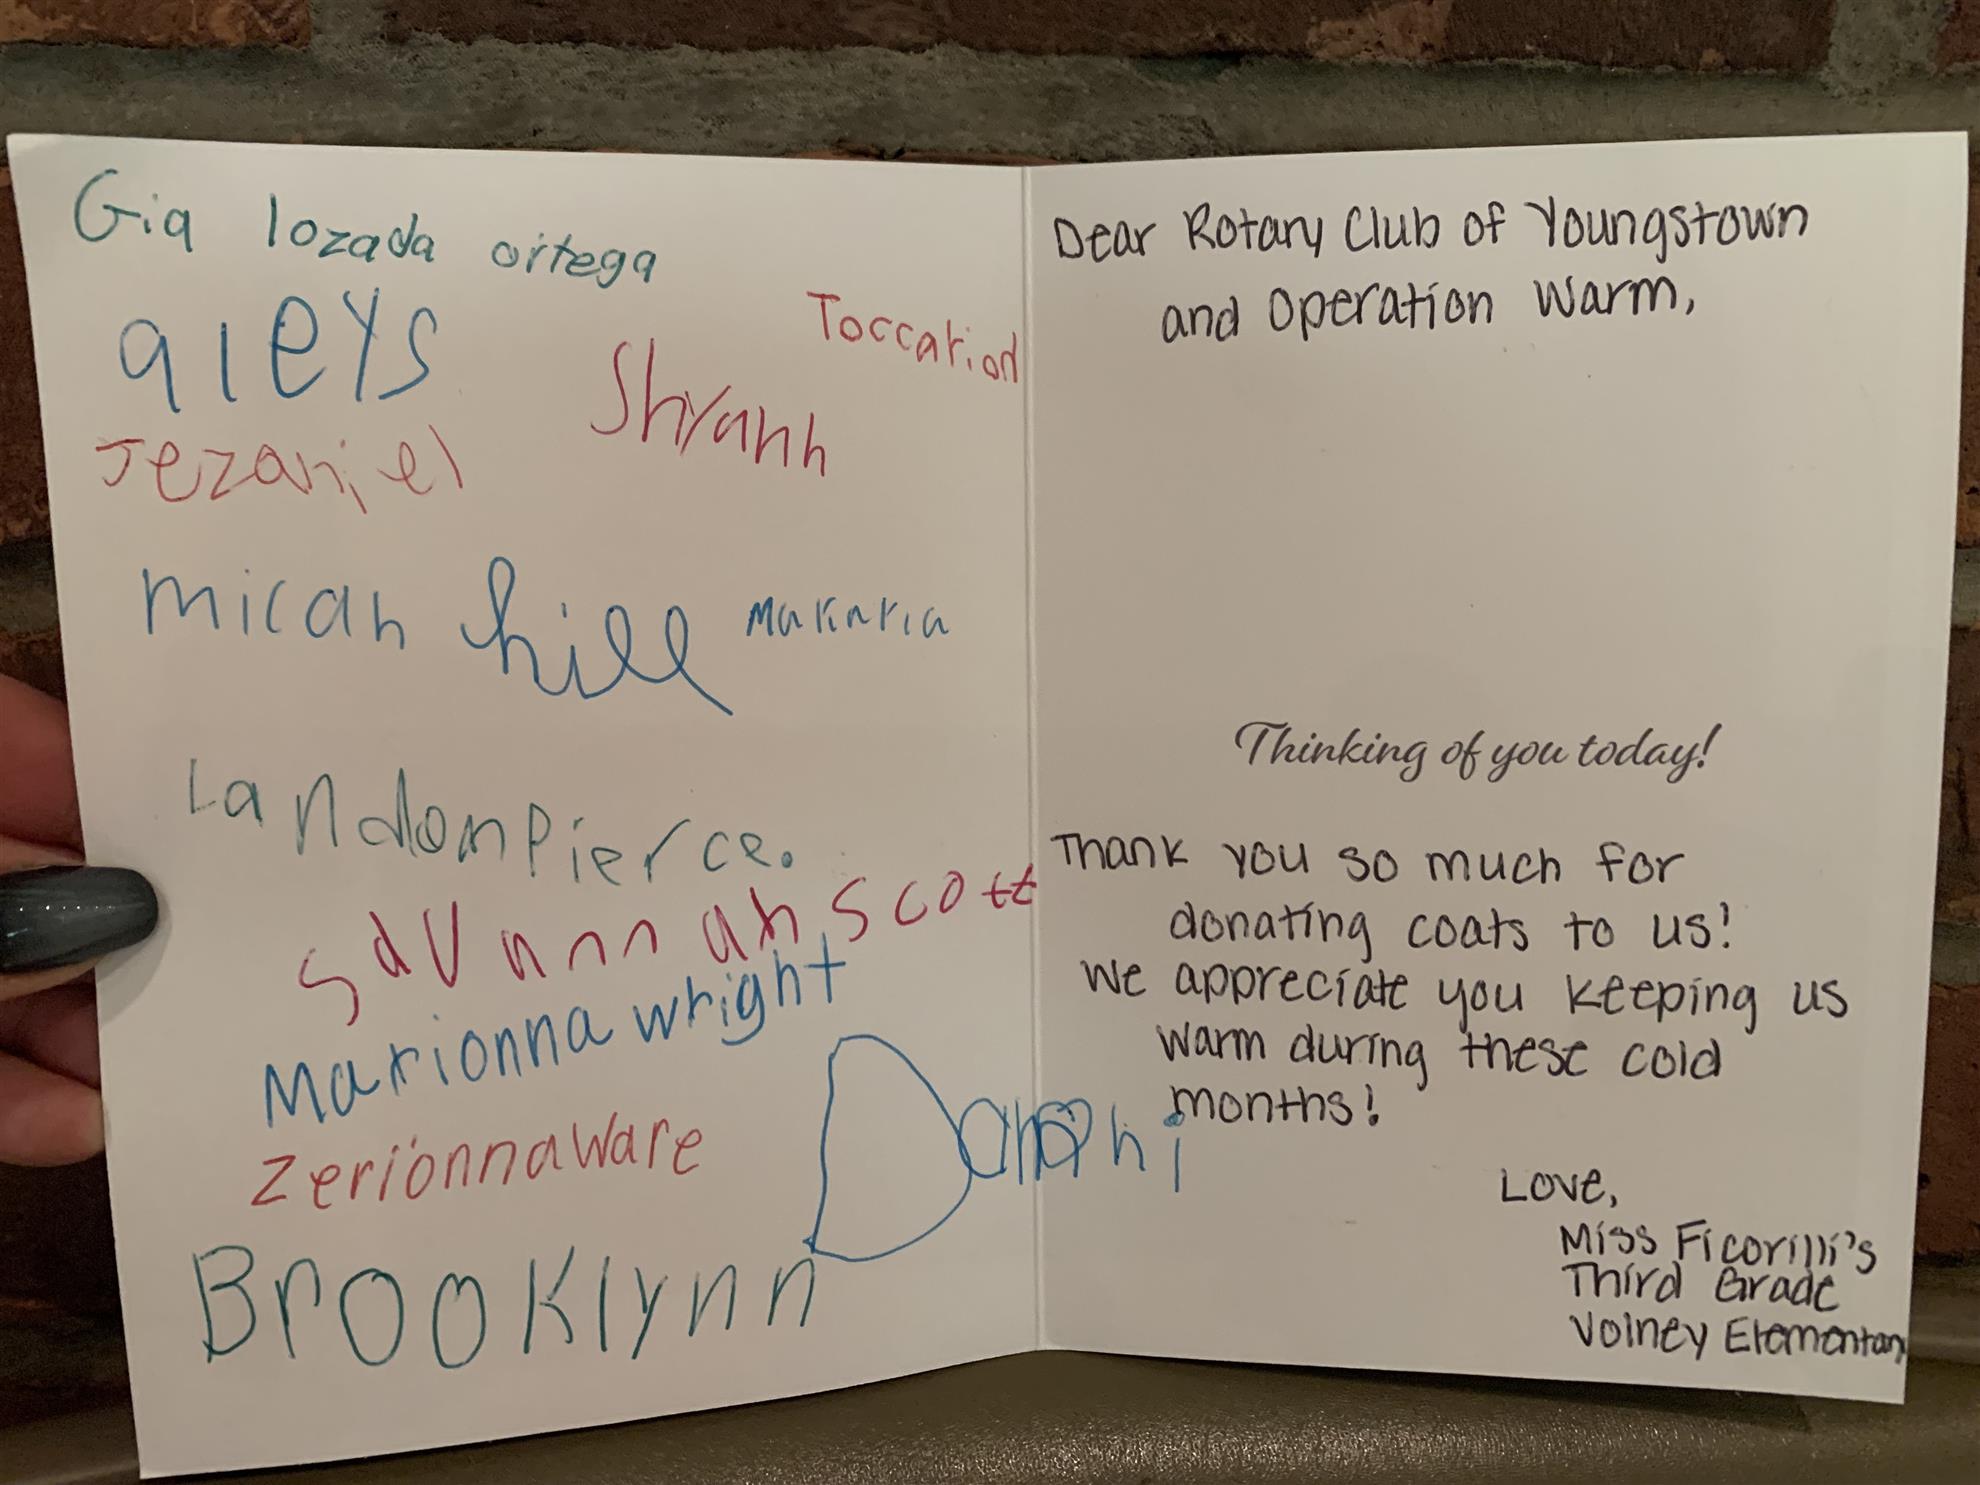 Gia lozada ortega
aleys
Toccarion
Shyanh
Jezaniel
micah hill
Makaria
Landon Pierce.
Savannah Scott
Marionna wright
zerionna ware
Brooklynn
Dear Rotary Club of Youngstown
and Operation Warm,
Thinking of you today!
Thank you so much for
donating coats to us!
We appreciate you keeping us
warm during these cold
months!
Love,
Miss Ficorilli's
Third Grade
Volney Elementary